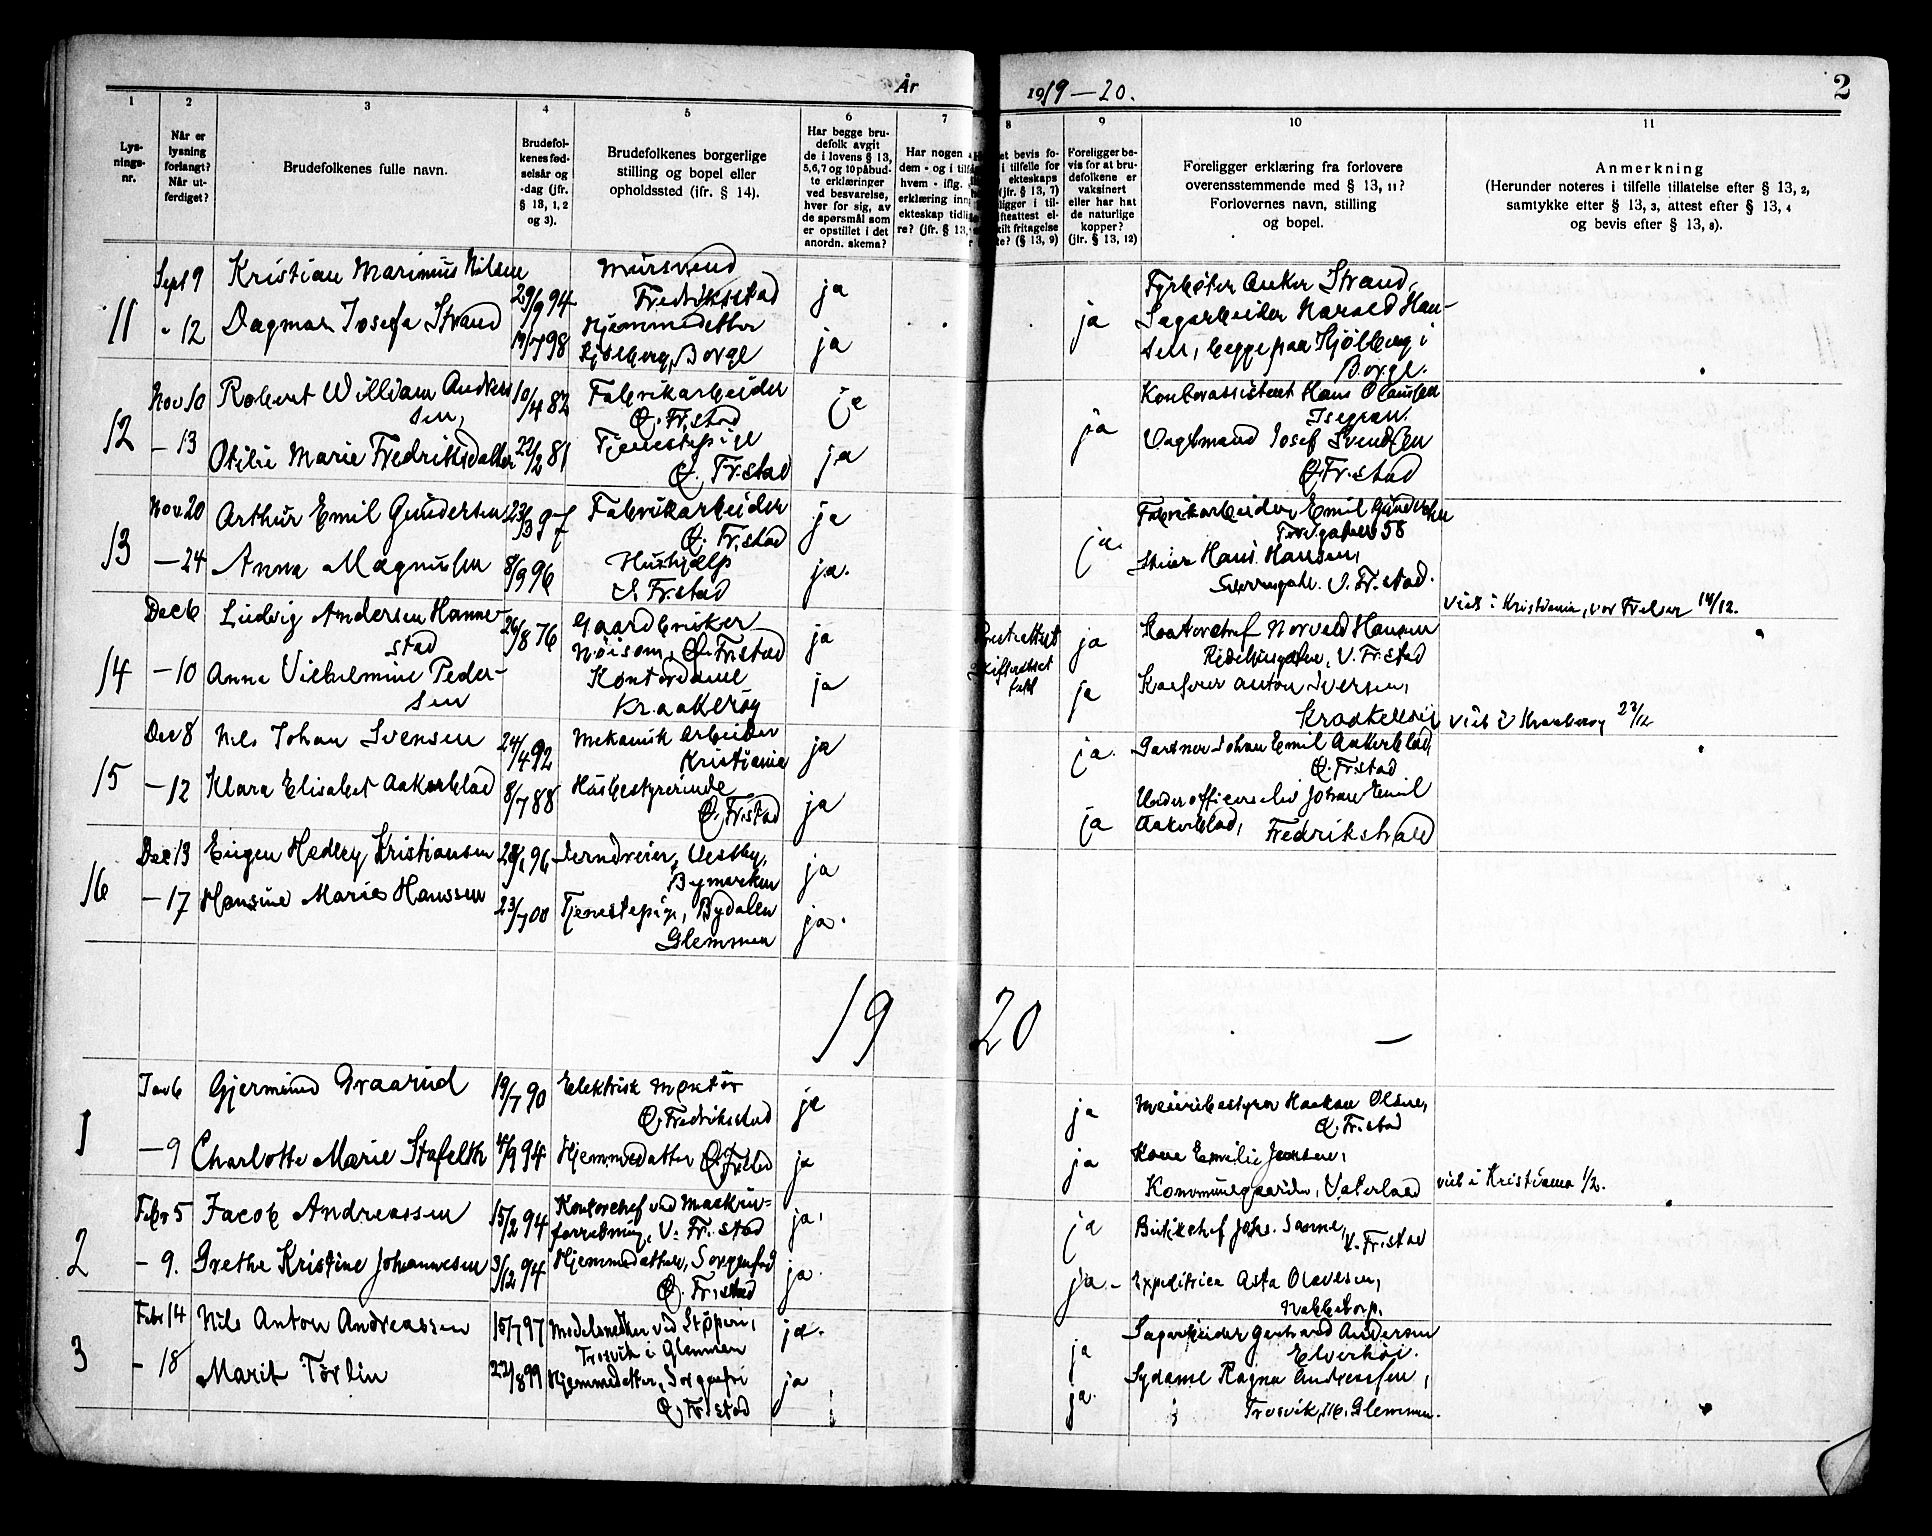 År 1919—20.
2
1 2 3 4 5 6 7 8 9 10 11
Lys-
nings-
nr.
Når er
lysning
forlangt?
Når ut-
ferdiget?
Brudefolkenes fulle navn.
Brudefol-
kenes fød-
selsår og
-dag (jfr.
§ 13, 1, 2
og 3).
Brudefolkenes borgerlige
stilling og bopel eller
opholdssted (jfr. § 14).
Har begge bru-
defolk avgit
de i lovens § 13,
5,6,7 og 10 påbud-
te erklæringer
ved besvarelse,
hver for sig, av
de spørsmål som
er opstillet i det
anordn. skema?
Har nogen
dem - og i tilf
hvem - iflg.
erklæring inn
ekteskap tidli
re? (jfr. § 13,
et bevis fo-
i tilfelle for
ekteskaps
(jfr. § 13, 7)
ligger i til-
ifteattest el-
kilt fritagelse
te? (§ 13, 9)
Foreligger be-
vis for at bru-
defolkene er
vaksinert
eller har hat
de naturlige
kopper?
(jfr. § 13, 12)
Foreligger erklæring fra forlovere
overensstemmende med § 13, 11?
Forlovernes navn, stilling
og bopel.
Anmerkning
(Herunder noteres i tilfelle tillatelse efter § 13, 2,
samtykke efter § 13, 3, attest efter § 13, 4
og bevis efter § 13, 8).
11
Sept 9
" 12
Kristian Marinius Nilsen
Dagmar Josefa Strand
29/9 94
19/7 98
Mursvend
Fredriksstad
Hjemmedatter
Kjölberg, Borge
ja
ja
ja
Fyrbøter Anker Strand,
Sagarbeider Harald Han-
sen, begge paa Kjölberg i
Borge.
12
Nov 10
— 13
Robert William Andres
sen,
Otilie Marie Fredriksdatter
10/4 82
22/2 81
Fabrikarbeider
Ø. Fr.stad
Tjenestepige
Ø. Fr.stad
ja
ja
ja
Kontorassistent Hans Olaussen
Isegran.
Vagtmand Josef Svendsen
Ø. Fr.stad
13
Nov 20
—24
Arthur Emil Gundersen
Anna Magnusen
23/3 97
8/9 96
Fabrikarbeider
Ø. Fr.stad
Hushjælp
Fr.stad
ja
ja.
ja.
Fabrikarbeider Emil Gundersen
58
Hans Hansen,
V. Fr.stad.
14
Dec 6
—10
Ludvig Andersen Hanne-
stad
Anna Vilhelmine Peder-
sen
26/8 76
Gaardbruker
Nöisom, Ø. Fr.stad
Kontordame
Kraakeröy
ja
ja
ja
ja
Kontorchef Norvald Hansen
Ridehusgaten, V. Fr.stad
Anton Iversen,
Kraakeröy
viet i Kristiania, vor Frelser 14/12.
15
Dec 8
—12
Nils Johan Svensen
Klara Elisabet Aakerblad
24/4 92
8/7 88
Mekanisk Arbeider
Kristiania
Husbestyrerinde
Ø. Fr.stad
ja
ja
ja.
ja
Gartner Johan Emil Aakerblad,
Ø. Fr.stad
Underofficerselev Johan Emil
Aakerblad, Fredrikshald
viet i Kraakeröy 27/12
16
Dec 13
—17
Eugen Hedley Kristiansen
Hansine Marie Hanssen
96
23/7 00
Jerndreier, Vestby,
Bymarken
Tjenestepige, Bydalen
Glemmen
ja
ja.
19 20
—
1
Jan 6
—9
Gjermund Graarud
Charlotte Marie Stafelth
19/7 90
4/9 94
Elektrisk Montör
Ø. Fredriksstad
Hjemmedatter Ø. Fr.stad
ja
ja
ja
ja
Meieribestyrer Haakon Olsen,
Ø. Fr.stad
Kone Emilie Jensen,
Kommunegaarden, Vaterland
viet i Kristiania 1/2.
2
Febr 5
— 9.
Jacob Andreassen
Grethe Kristine Johannesen
15/2 94
3/12 94
Kontorchef ved Maskin-
forretning, V. Fr.stad
Hjemmedatter, Sorgenfri
Ø. Fr.stad
ja,
ja.
ja
ja.-
Butikchef Johs. Sanne,
V. Fr.stad
Expeditrice Asta Olavesen,
Nabbetorp.
3
Febr 14
— 18
Nils Anton Andreassen
Marit Törlin
15/7 97
22/8 99
Modelsnedker ved Støperi,
Trosvik i Glemmen
Hjemmedatter, Sorgenfri
Ø. Fr.stad
ja.
ja
ja
ja.
Sagarbeider Gerhard Andersen
Elverhöi.
Sydame Ragna Andreassen,
Trosvik, Glemmen.